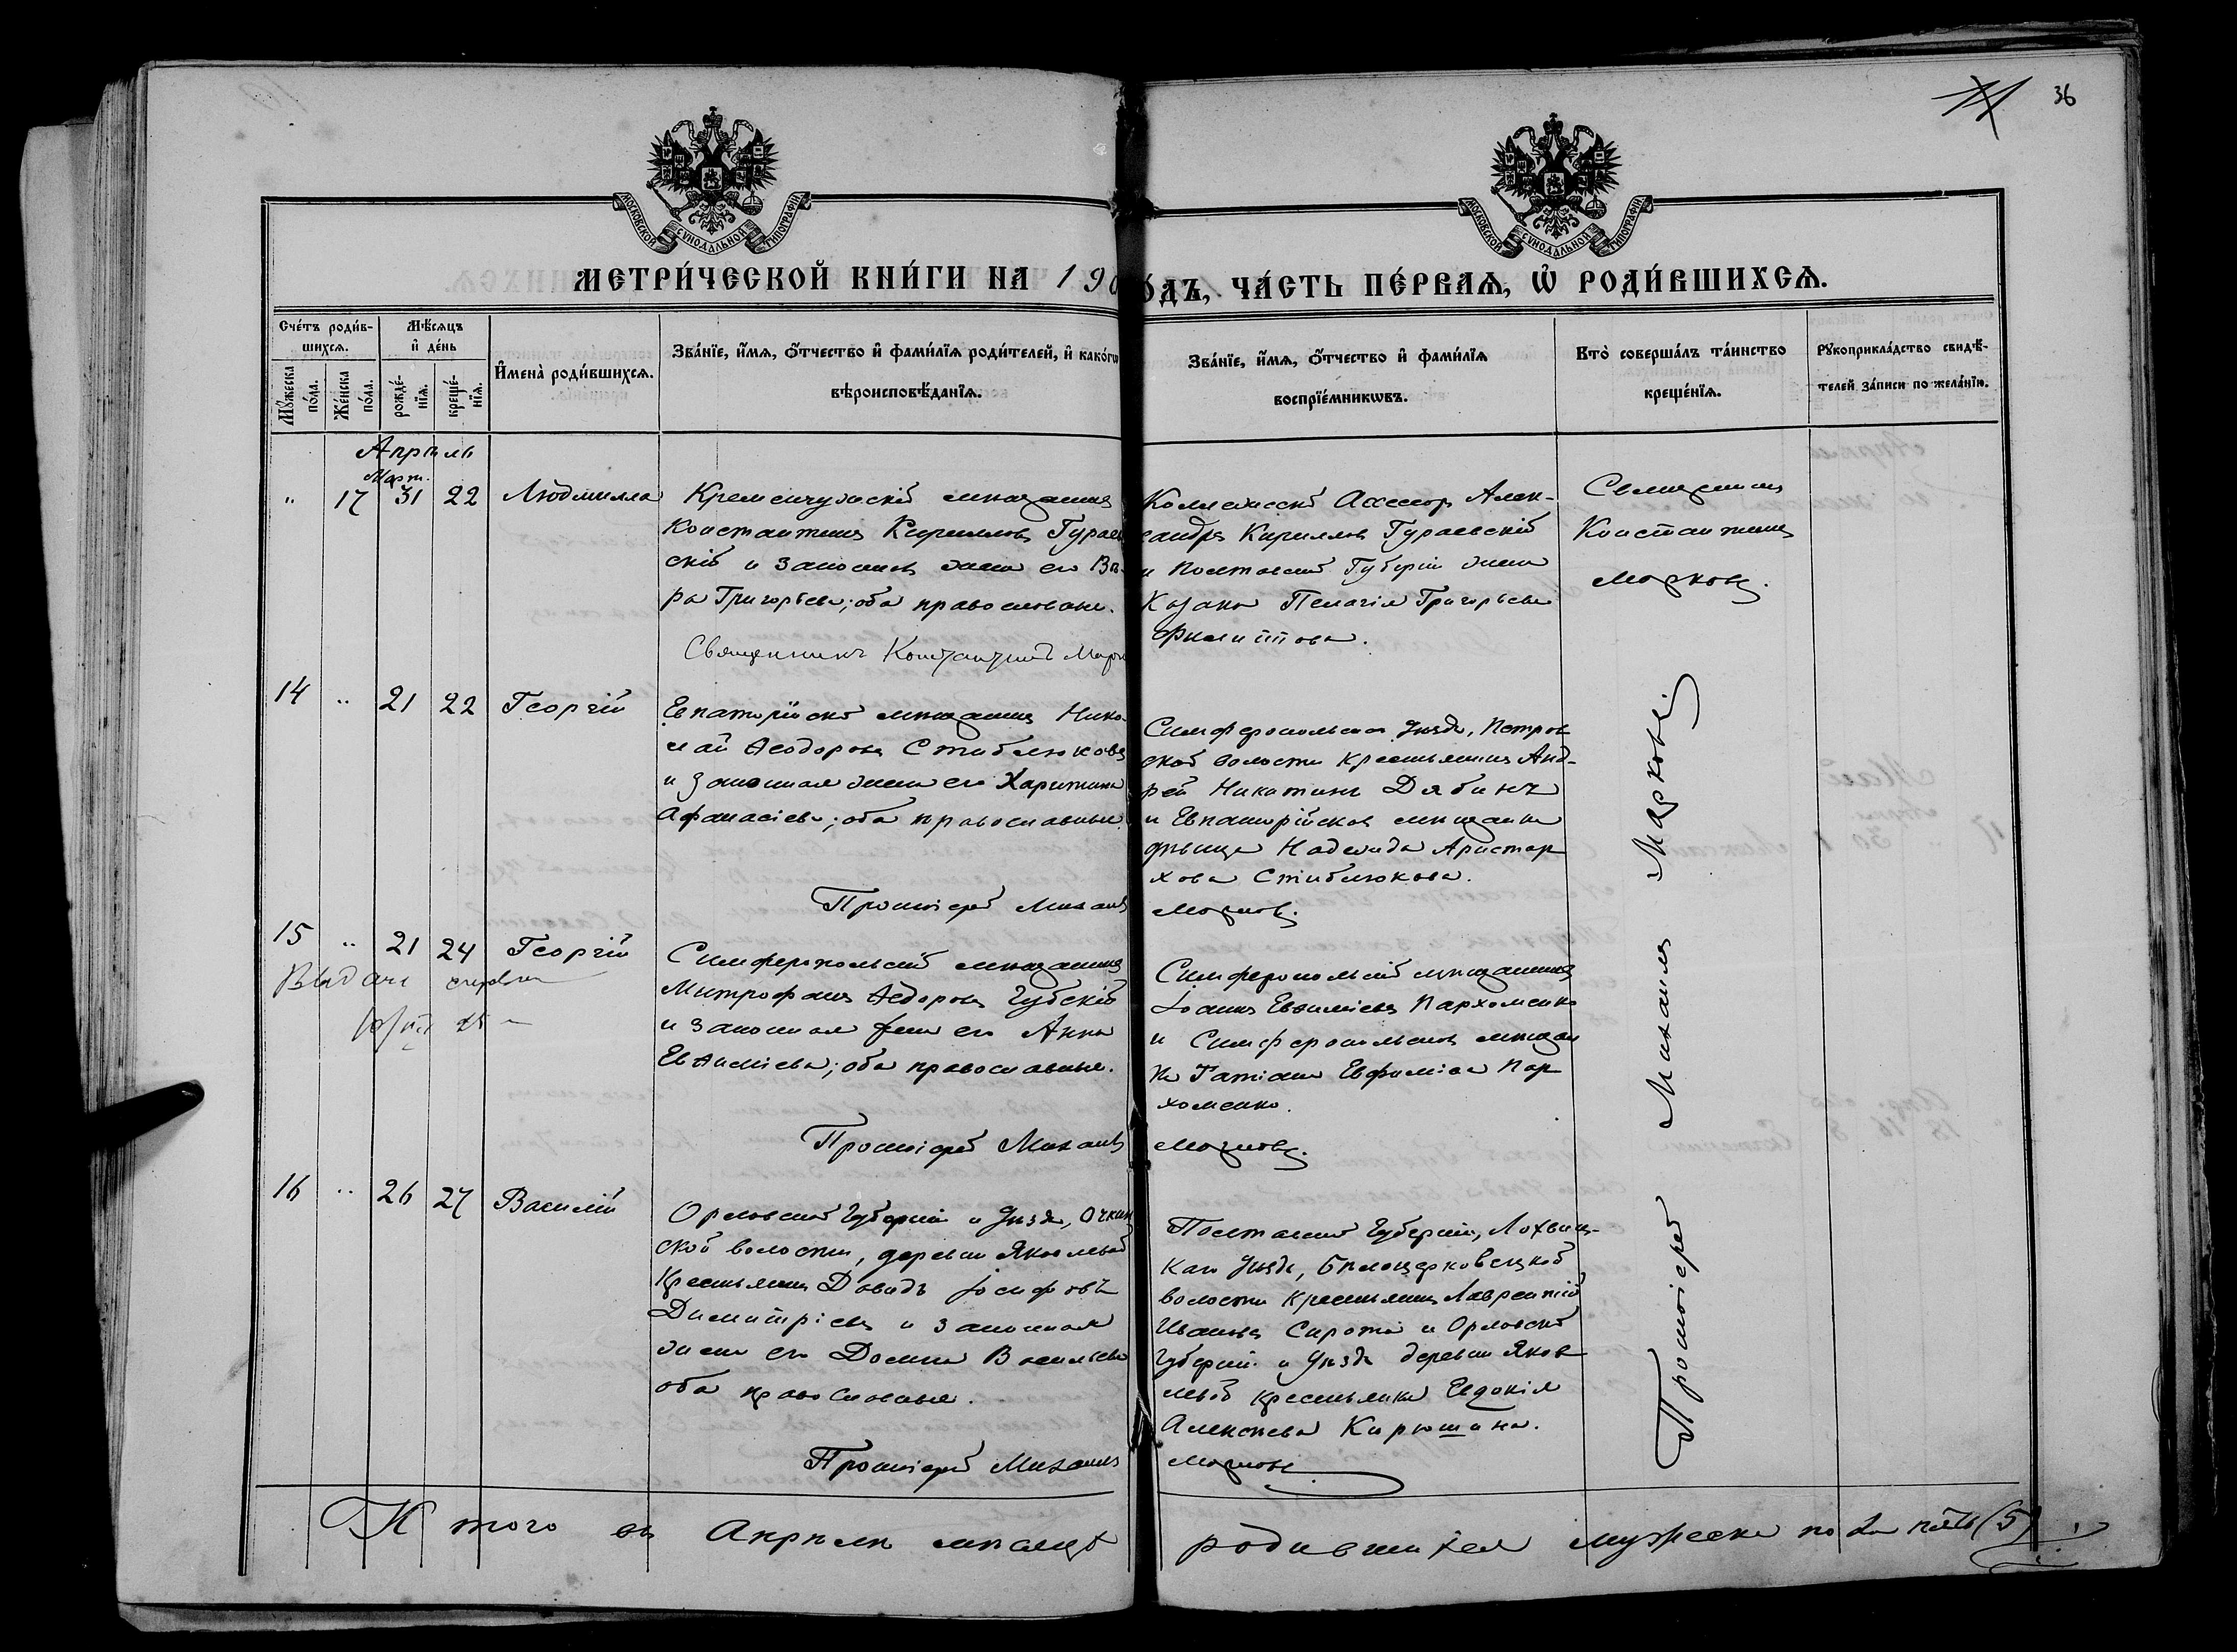 36
МОСКОВСКОЙ СѴНОДАЛЬНОЙ ТИПОГРАФІИ
МОСКОВСКОЙ СѴНОДАЛЬНОЙ ТИПОГРАФІИ
МЕТРИ́ЧЕСКОЙ КНИ́ГИ НА 190
О́ДЪ, ЧА́СТЬ ПЕ́РВАѦ, Ѡ҆ РОДИ́ВШИХСѦ.
Сче́тъ роди́в-
шихсѧ.
Мѣ́сѧцъ
и҆ де́нь
Мꙋ́жеска
по́ла.
Же́нска
по́ла.
рожде́-
нїѧ.
креще́-
нїѧ.
И҆мена̀ роди́вшихсѧ.
Зва́нїе, и҆́мѧ, ѻ҆́тчество и҆ фами́лїѧ роди́телей, и҆ како́гѡ
вѣроисповѣ́данїѧ.
Зва́нїе, и҆́мѧ, ѻ҆́тчество и҆ фами́лїѧ
воспрїе́мникѡвъ.
Кто̀ соверша́лъ та́инство
креще́нїѧ.
Рꙋкоприкла́дство свидѣ́-
телей за́писи по жела́нїю.
Апрѣль
Март.
" 17 31 22 Людмилла
Кременчужскій мѣщанинъ
Константинъ Кирилловъ Гураев
скій и законная жена его Вѣ-
ра Григорьева; оба православн.
Священникъ Константинъ Марк
Коллежскій Ассесоръ Алек-
сандръ Кирилловъ Гураевскій
и Полтавской Губерніи жена
Козака Пелагія Григорьева
Филиппова.
Священникъ
Константинъ
Марковъ.
14 " 21 22 Георгій
Евпаторійскій мѣщанинъ Нико-
лай Ѳеодоровъ Стиблюковъ
и законная жена его Харитина
Афанасіева; оба православные.
Протоіерей Михаилъ
Симферопольскаго Уѣзда, Петров
ской волости крестьянинъ Анд-
рей Никитинъ Дябинъ
и Евпаторійская мѣщанка
дѣвица Надежда Аристар
хова Стиблюкова.
Марковъ.
15 " 21 24 Георгій
Выдана
Симферопольскій мѣщанинъ
Митрофанъ Ѳедоровъ Губскій
и законная жена его Анна
Евѳиміева; оба православные.
Протоіерей Михаилъ
Симферопольскій мѣщанинъ
Іоаннъ Евѳиміевъ Пархоменко
и Симферопольская мѣщан
ка Татіана Евфиміева Пар
хоменко.
Марковъ.
16 " 26 27 Василій
Орловской Губерніи и Уѣзда,
ской волости, деревни Яковлевой
крестьянинъ Давидъ Іосифовъ
Димитріевъ и законная
жена его Домна Васильева
оба православные.
Протоіерей Михаилъ
Полтавской Губерніи, Лохвиц-
каго Уѣзда, Бѣлоцерковецкой
волости крестьянинъ Лаврентій
Ивановъ Сирота и Орловской
Губерніи и Уѣзда деревни Яков
левой крестьянка Евдокія
Алексѣева Кирюшина.
Марковъ
Протоіерей Михаилъ Марковъ
Итого въ Апрѣлѣ мѣсяцѣ
родившихся мужеска пола пять (5)